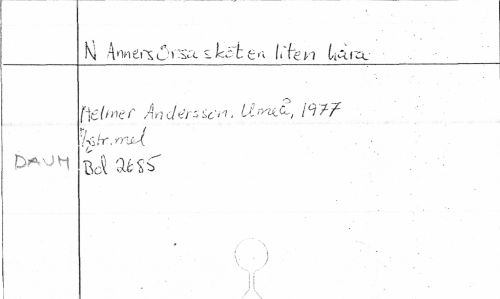 N Anners Orsa sköt en liten hära
Helmer Andersson. Umeå, 1977
½str.mel
DAUM Bd 2685